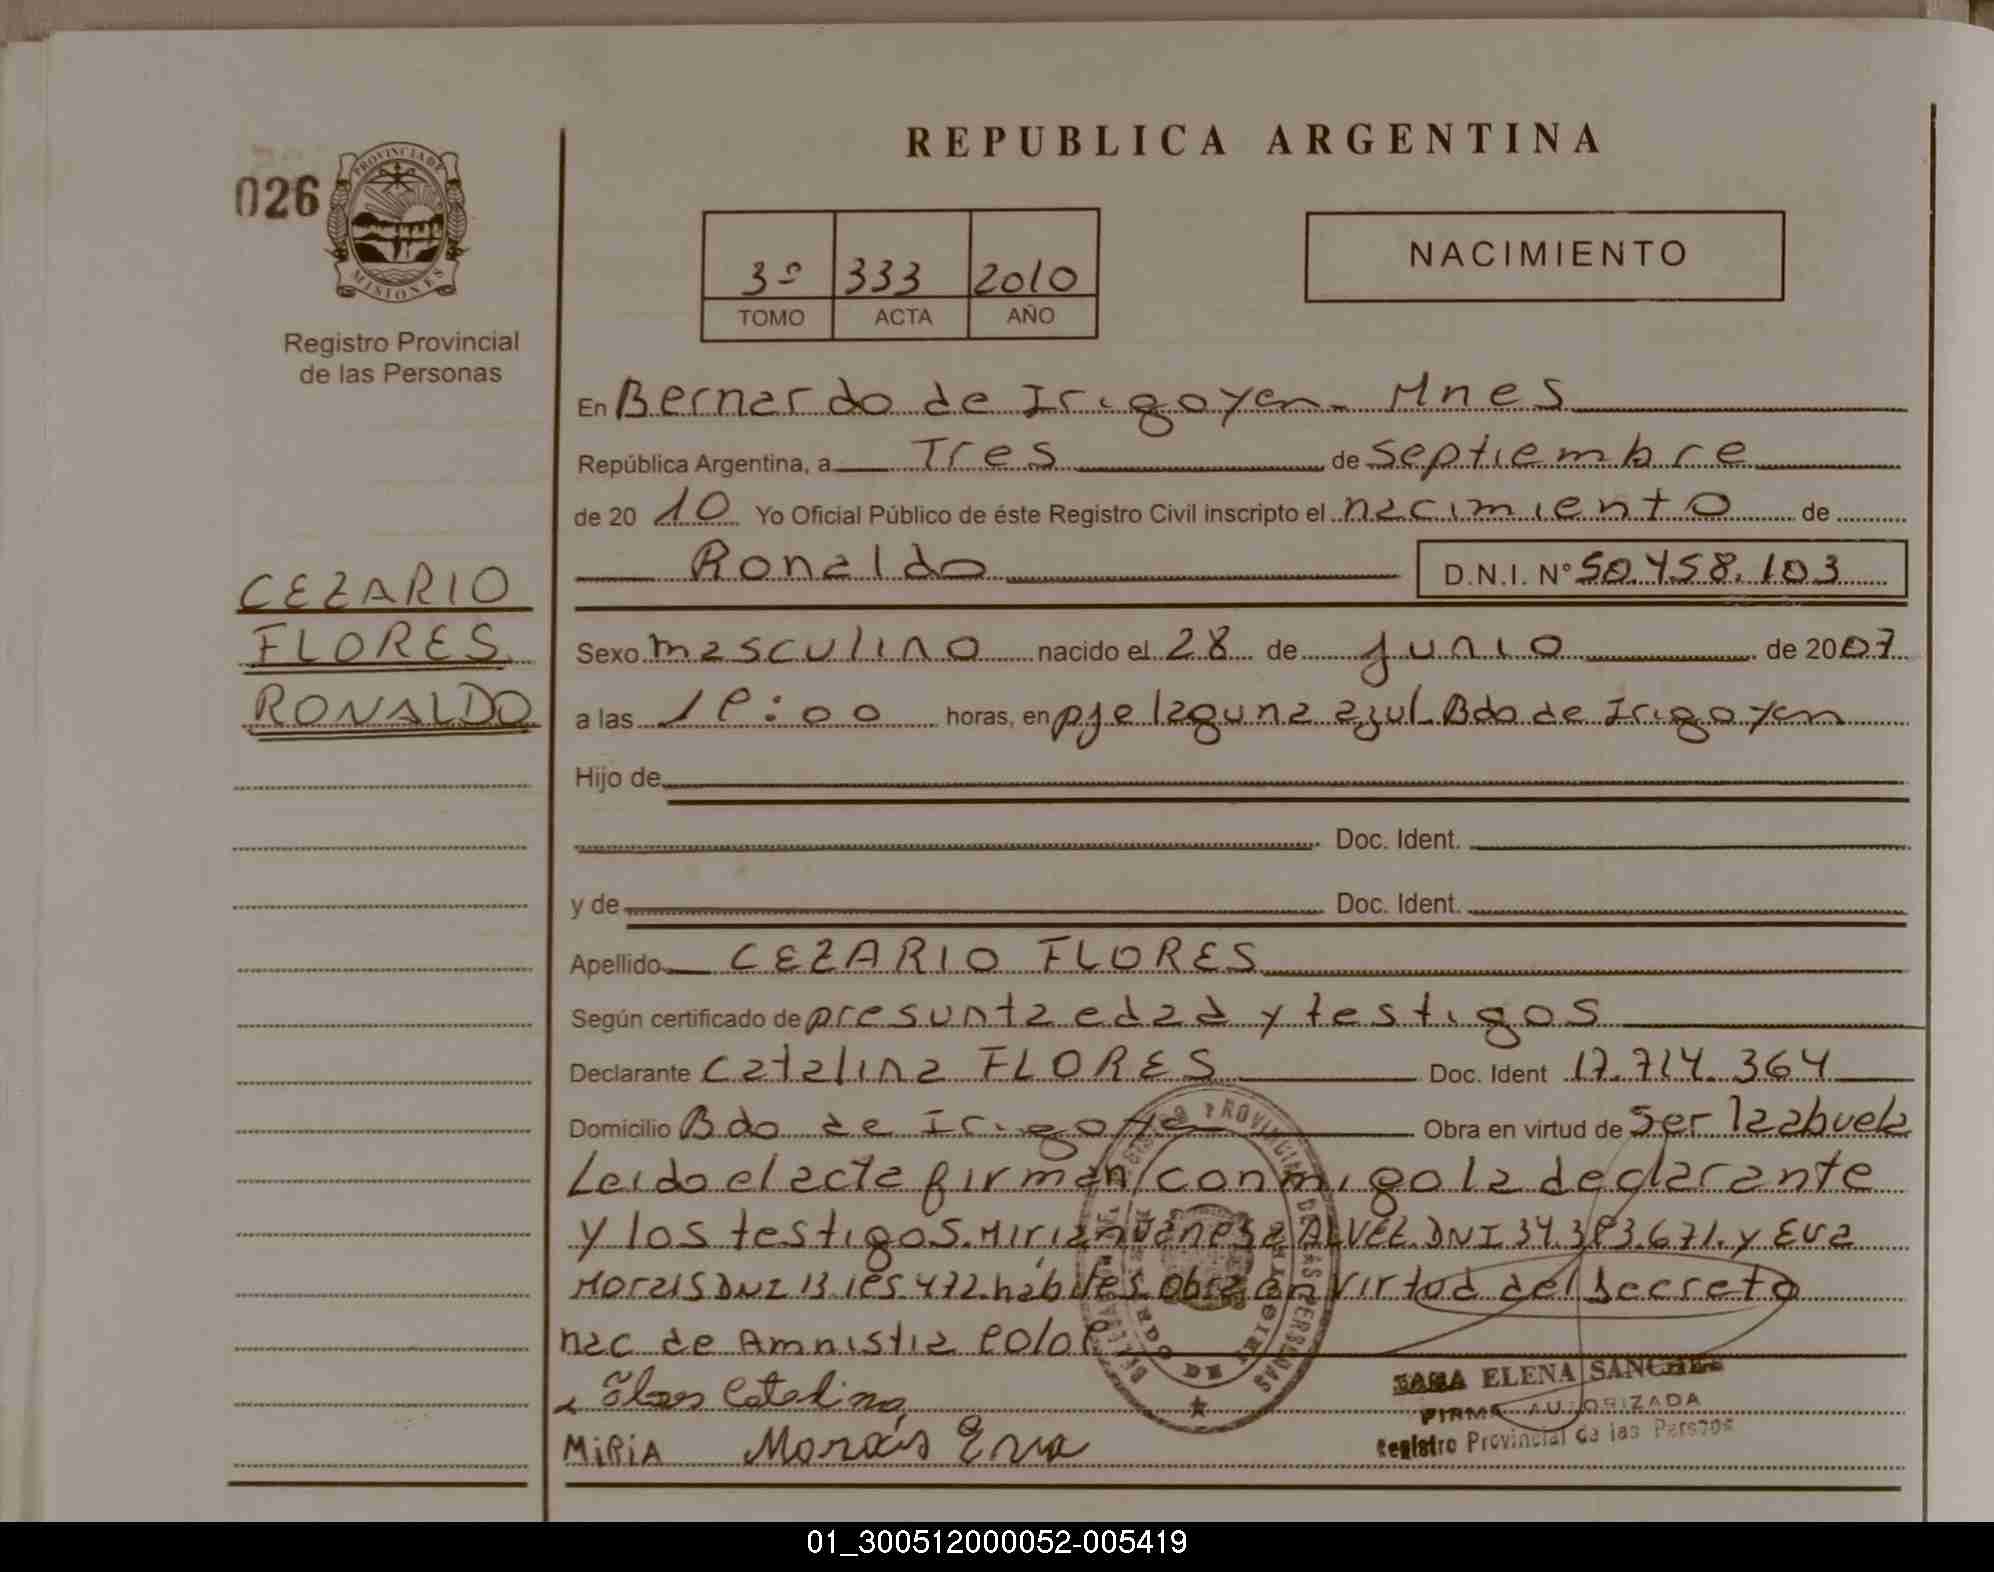 REPUBLICA ARGENTINA
026
PROVINCIA DE
MISIONES
Registro Provincial
de las Personas
3º 333 2010
TOMO ACTA AÑO
NACIMIENTO
En Bernardo de Irigoyen - Mnes
República Argentina, a Tres de septiembre
de 20 10 Yo Oficial Público de éste Registro Civil inscripto el nacimiento de
Ronaldo D.N.I. Nº 50.458.103
CEZARIO
FLORES
RONALDO
Sexo masculino nacido el 28 de junio de 2007
a las horas, en pje laguna azul Bdo de Irigoyen
Hijo de
Doc. Ident.
y de Doc. Ident.
Apellido CEZARIO FLORES
Según certificado de presunta edad y testigos
Declarante Catalina FLORES Doc. Ident 17.714.364
Domicilio Bdo de Irigoyen Obra en virtud de ser la abuela
Leido el acta firman conmigo la declarante
y los testigos. Mirian Vanesa DNI y Eva
Morais DNI habiles obra en virtud del Decreto
nac de Amnistia
Flores Catalina
MIRIA Morais Eva
SARA ELENA SANCHEZ
FIRMA AUTORIZADA
Registro Provincial de las Personas
01_300512000052-005419